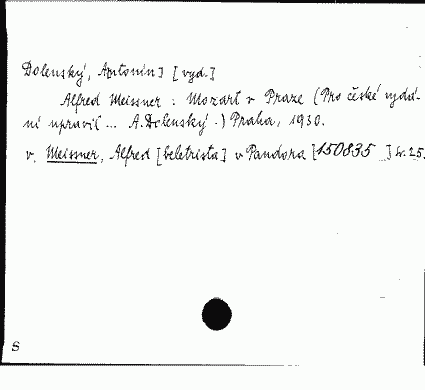 Dolenský, Antonín] [vyd.]
Alfred Meissner: Mozart v Praze (Pro české vydá-
ní upravil ... A. Dolenský.) Praha, 1930.
v. Meissner, Alfred [beletrista] v Pandora [150835] sv. 25.
S